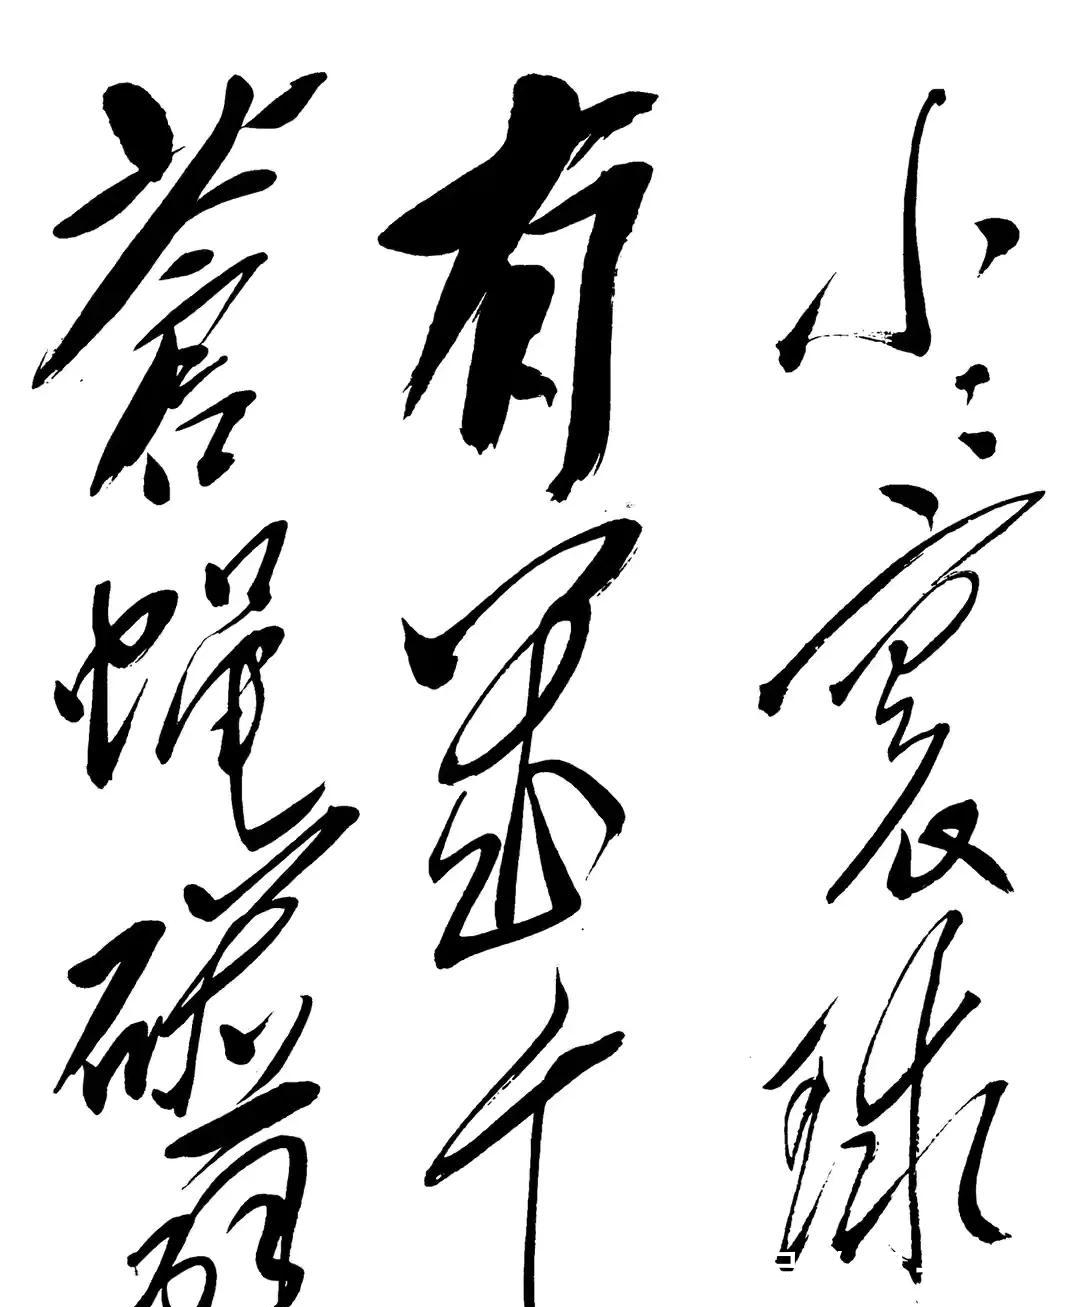 小小寰球
有幾个
蒼蝇碰壁